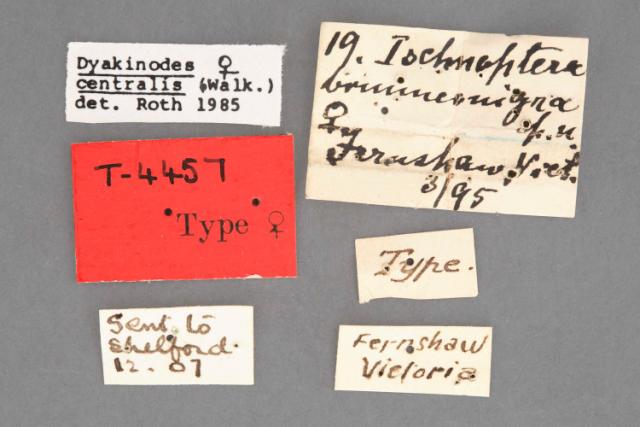 Dyakinodes ♀
centralis (Walk.)
det. Roth 1985
19. Ischnoptera
brunneonigra
♀
Fernshaw. Vict.
3/95
T-4457
Type ♀
Type.
Sent to
Shelford.
12.07
Fernshaw
Victoria